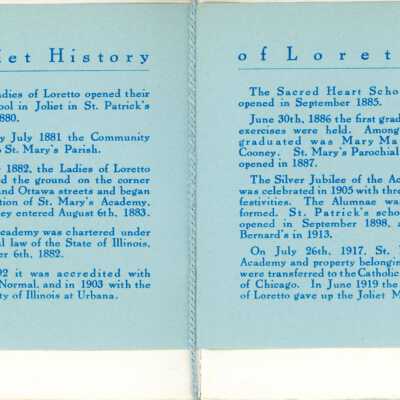 iet History
adies of Loretto opened their
ool in Joliet in St. Patrick's
880.
y July 1881 the Community
o St. Mary's Parish.
y 1882, the Ladies of Loretto
d the ground on the corner
and Ottawa streets and began
tion of St. Mary's Academy,
ey entered August 6th, 1883.
cademy was chartered under
al law of the State of Illinois,
er 6th, 1882.
92 it was accredited with
Normal, and in 1903 with the
ty of Illinois at Urbana.
of Lorett
The Sacred Heart Scho
opened in September 1885.
June 30th, 1886 the first grad
exercises were held. Among
graduated was Mary Ma
Cooney. St. Mary's Parochial
opened in 1887.
The Silver Jubilee of the Ac
was celebrated in 1905 with thre
festivities. The Alumnae wa
formed. St. Patrick's scho
opened in September 1898, a
Bernard's in 1913.
On July 26th, 1917, St.
Academy and property belongin
were transferred to the Catholic
of Chicago. In June 1919 the
of Loretto gave up the Joliet M